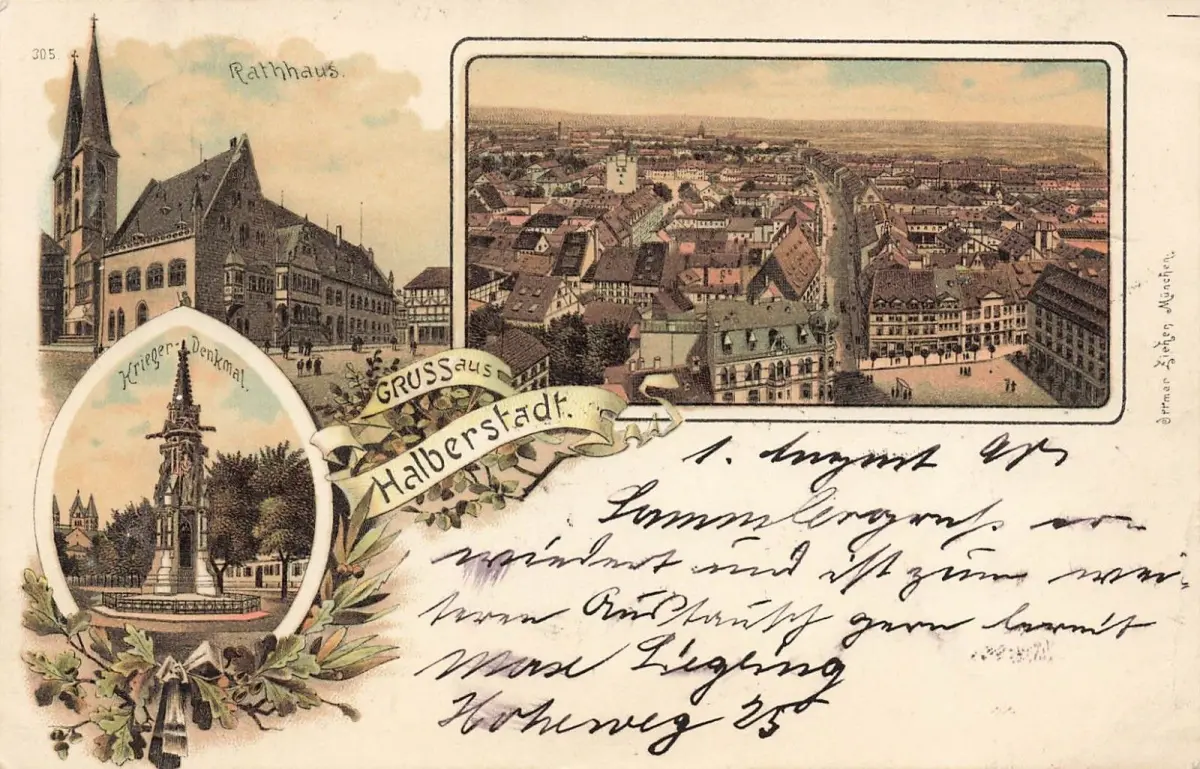 305
Rathhaus.
Krieger-Denkmal.
GRUSS aus
Halberstadt.
Ottmar Zieher, München.
1. August 98
Sammlergruß er-
wiedert und ist zum wei-
teren Austausch gern bereit
Max Liegling
Hoheweg 25